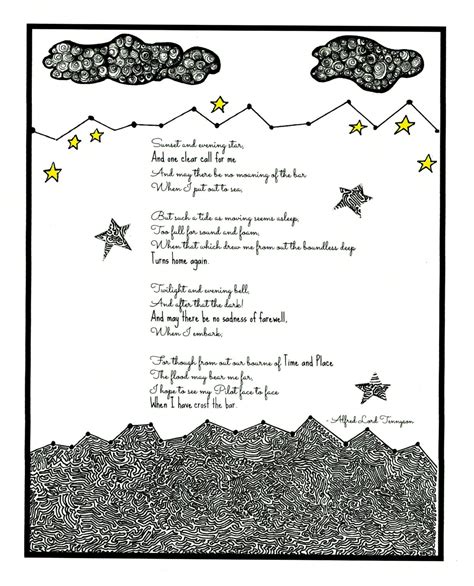 Sunset and evening star,
And one clear call for me
And may there be no moaning of the bar
When I put out to sea,
But such a tide as moving seems asleep,
Too full for sound and foam,
When that which drew me from out the boundless deep
Turns home again.
Twilight and evening bell,
And after that the dark!
And may there be no sadness of farewell,
When I embark;
For though from out our bourne of Time and Place
The flood may bear me far,
I hope to see my Pilot face to face
When I have crost the bar.
- Alfred Lord Tennyson